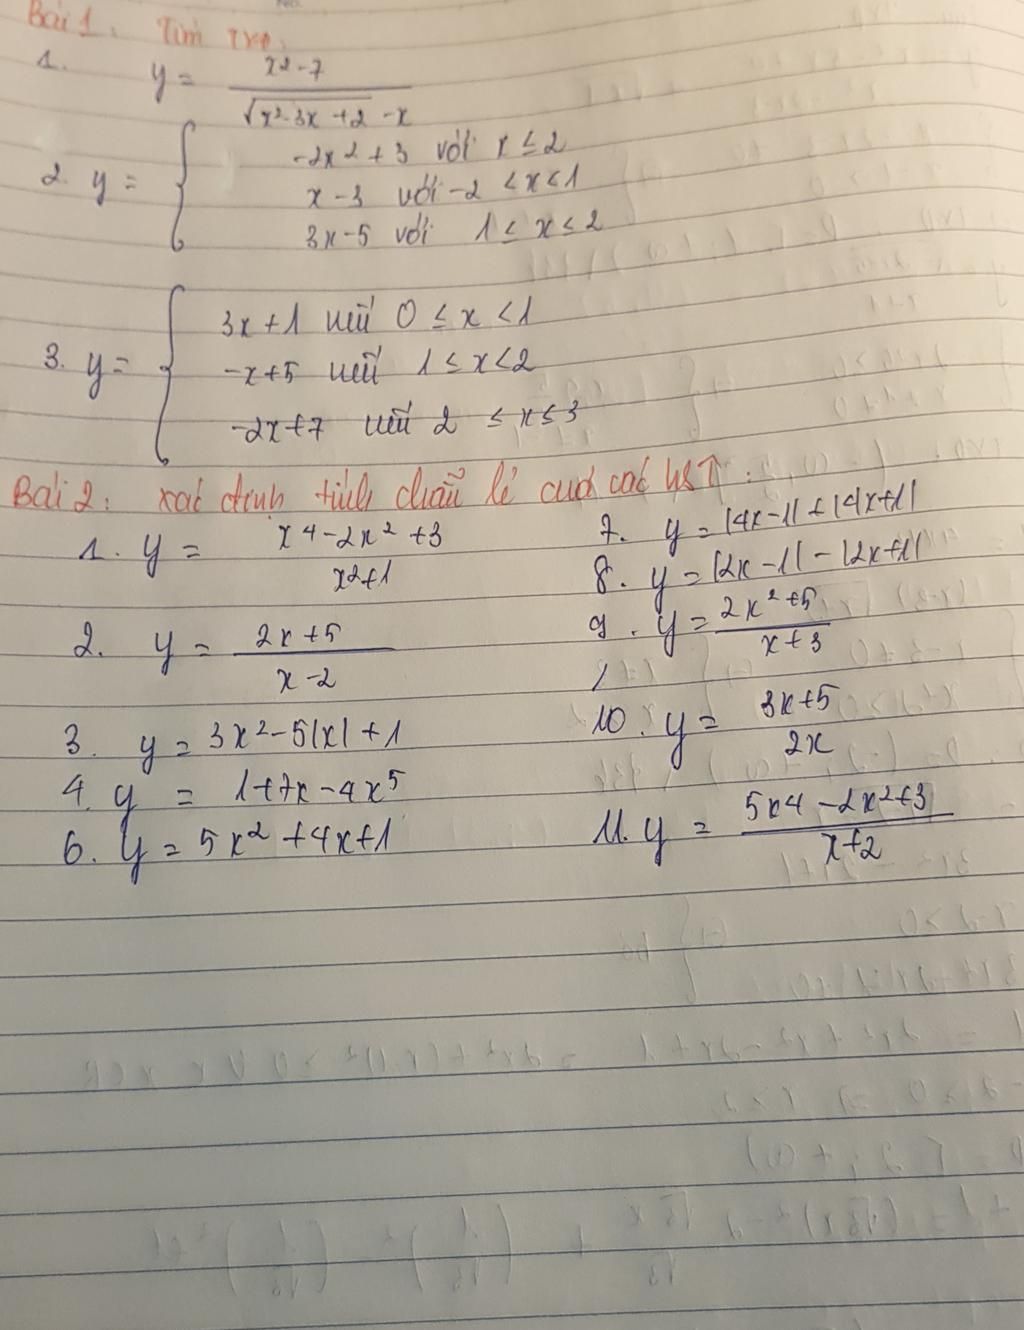 Bài 1. Tìm TXĐ.
1. y = (x2 - 7) / (√(x2 - 3x + 2) - x)
2. y = { -2x2 + 3 với x ≤ 2
x - 3 với -2 < x < 1
3x - 5 với 1 ≤ x ≤ 2
3. y = { 3x + 1 nếu 0 ≤ x < 1
-x + 5 nếu 1 ≤ x < 2
-2x + 7 nếu 2 ≤ x ≤ 3
Bài 2: xác định tính chẵn lẻ của các HST:
1. y = (x4 - 2x2 + 3) / (x2 + 1)
2. y = (2x + 5) / (x - 2)
3. y = 3x2 - 5|x| + 1
4. y = 1 + 7x - 4x5
6. y = 5x2 + 4x + 1
7. y = |4x - 1| + |4x + 1|
8. y = |2x - 1| - |2x + 1|
9. y = (2x2 + 5) / (x + 3)
10. y = (3x + 5) / 2x
11. y = (5x4 - 2x2 + 3) / (x + 2)